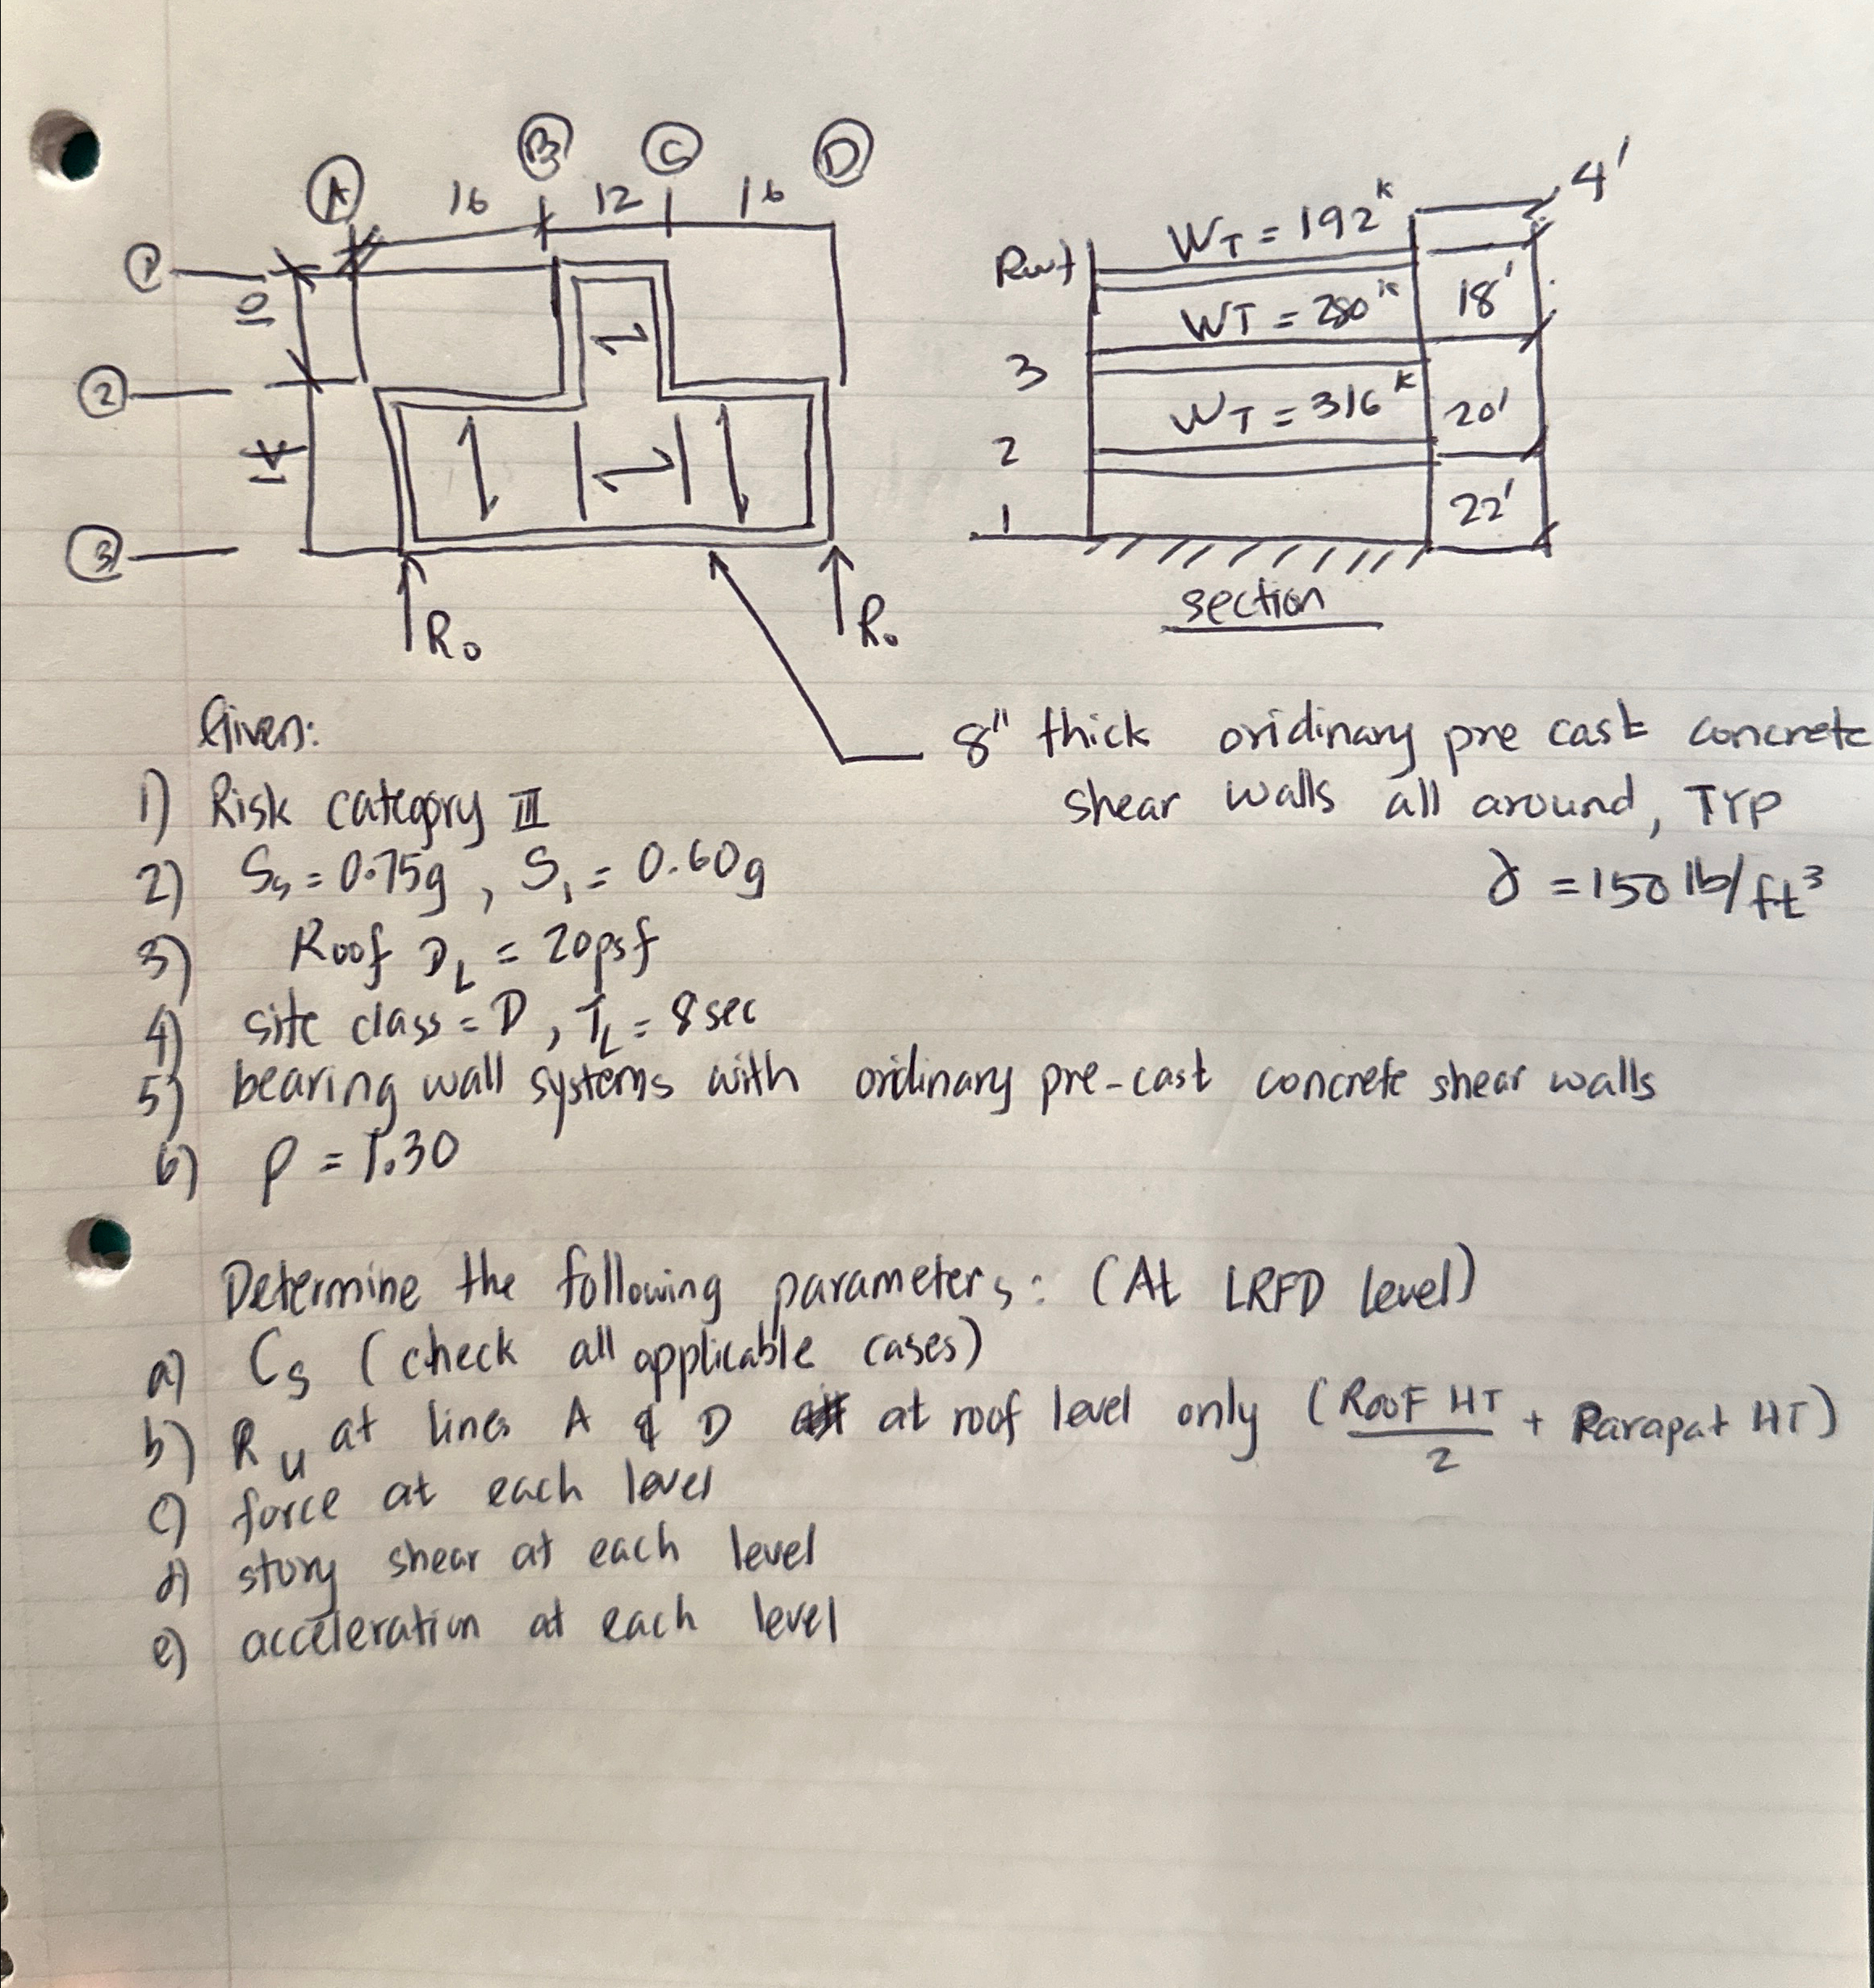 A B C D
16 12 16
1
10
2
14
3
R₀ R₀
4'
Roof W_T = 192ᵏ
WT = 280ᵏ 18'
3
W_T = 316ᵏ 20'
2
1 22'
section
Given:
8" thick oridinary pre cast concrete
shear walls all around, TYP
γ = 150 lb/ft³
1) Risk category III
2) Ss = 0.75g , S₁ = 0.60g
3) Roof D_L = 20psf
4) site class = D , T_L = 8 sec
5) bearing wall systems with ordinary pre-cast concrete shear walls
6) ρ = 1.30
Determine the following parameters: (At LRFD level)
a) Cs (check all applicable cases)
b) R_u at lines A & D at roof level only (ROOF HT / 2 + Parapat HT)
c) force at each level
d) story shear at each level
e) acceleration at each level